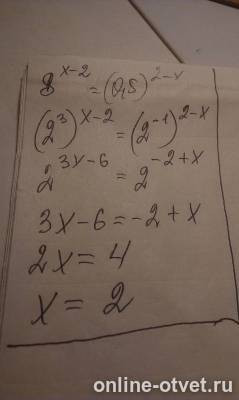 8^{x-2} = (0,5)^{2-x}
(2^3)^{x-2} = (2^{-1})^{2-x}
2^{3x-6} = 2^{-2+x}
3x-6=-2+x
2x=4
x=2
online-otvet.ru